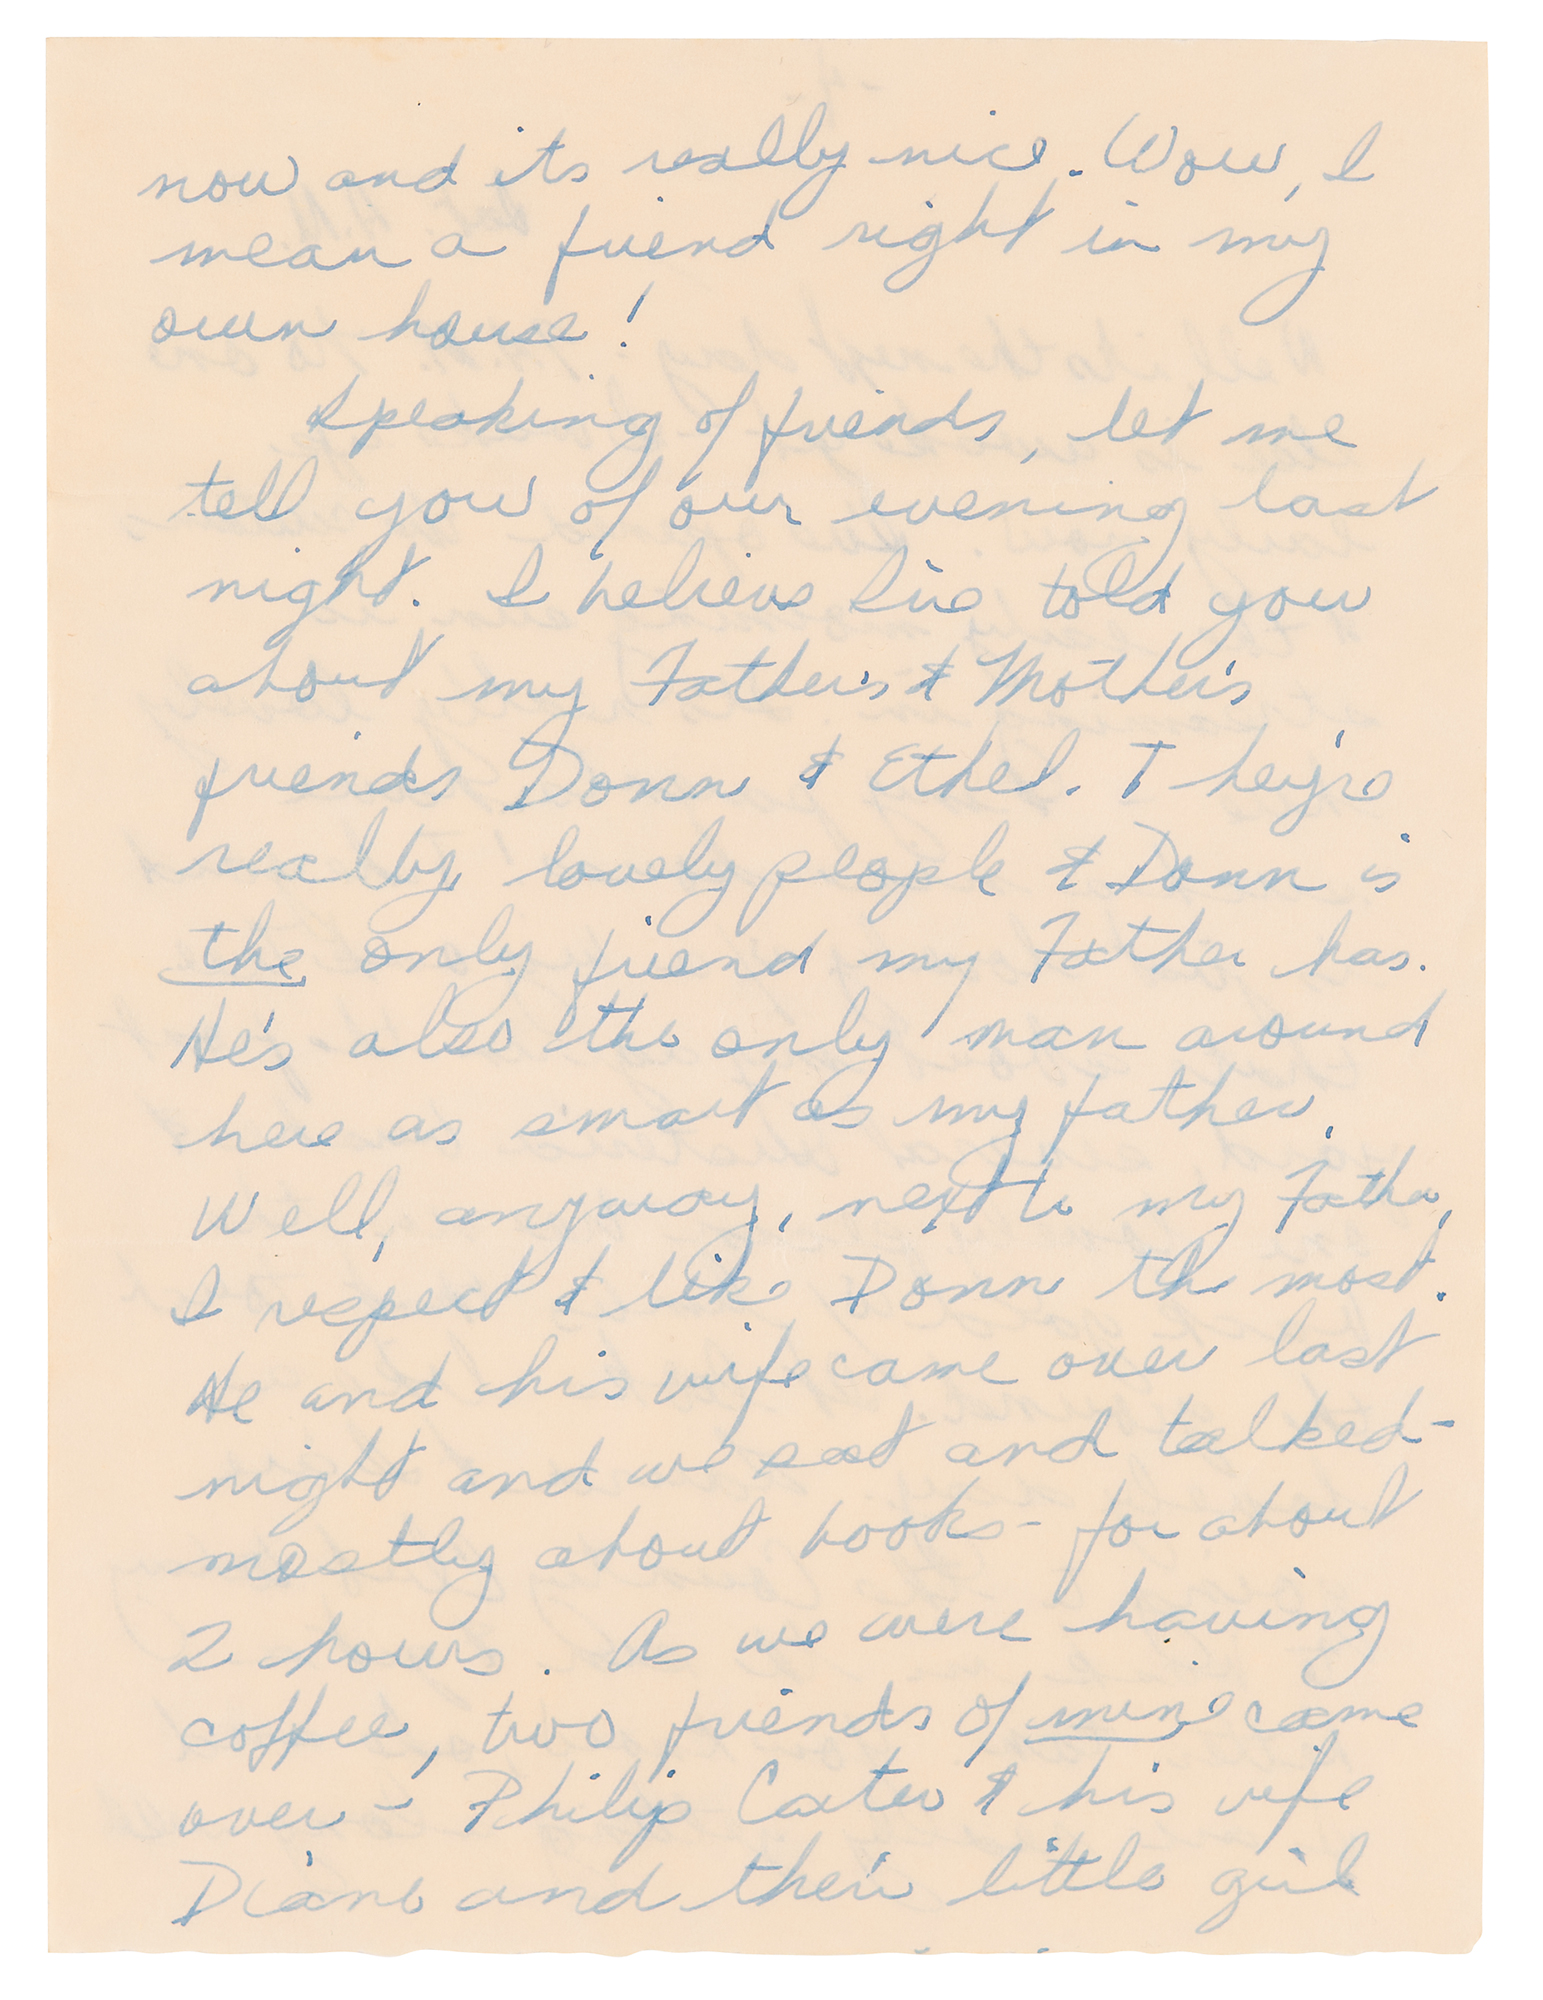 now and its really nice. Wow, I
mean a friend right in my
own house!
Speaking of friends, let me
tell you of our evening last
night. I believe I've told you
about my Father's & Mother's
friends Donn & Ethel. They're
really lovely people & Donn is
the only friend my Father has.
He's also the only man around
here as smart as my father.
Well, anyway, next to my Father,
I respect & like Donn the most.
He and his wife came over last
night and we sat and talked -
mostly about books - for about
2 hours. As we were having
coffee, two friends of mine came
over - Philip Carter & his wife
Diane and their little girl